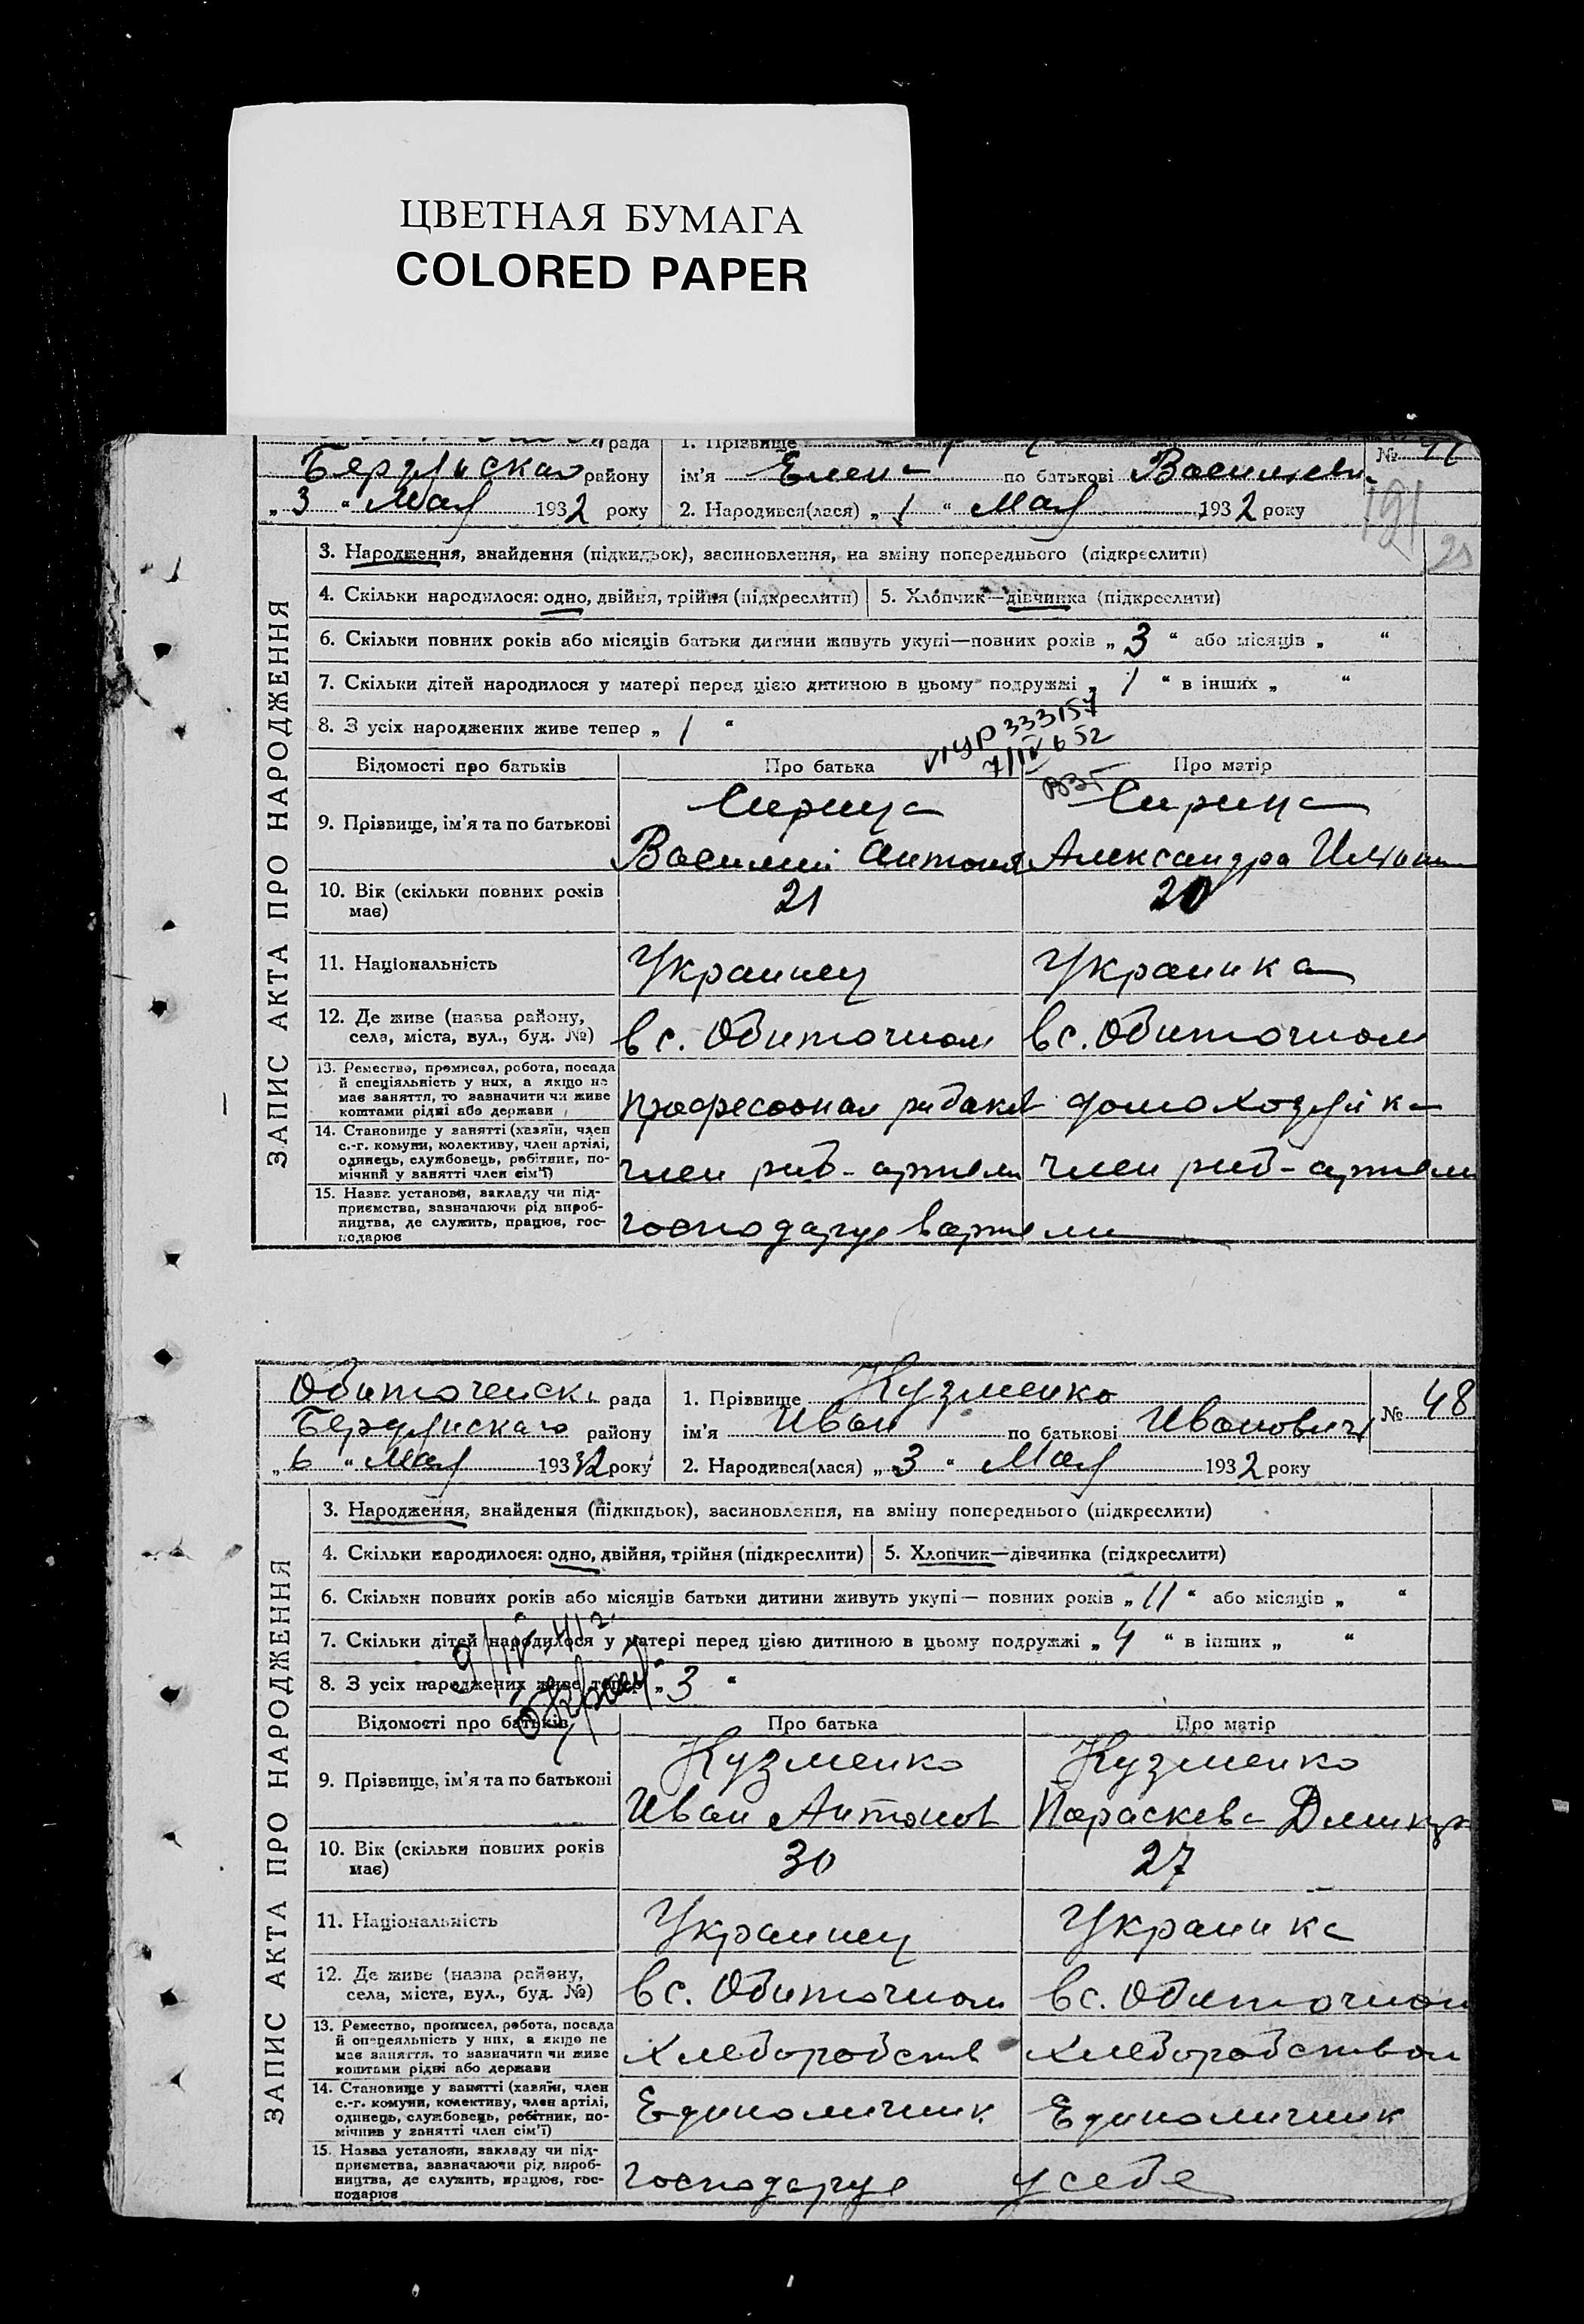 ЦВЕТНАЯ БУМАГА
COLORED PAPER
рада 1. Прізвище №
Бердянскаго району ім'я Елена по батькові Василиевн
„3" Мая 1932 року 2. Народився(лася) „1" Мая 1932 року
191
ЗАПИС АКТА ПРО НАРОДЖЕННЯ
3. Народження, знайдення (підкидьок), засиновлення, на зміну попереднього (підкреслити)
4. Скільки народилося: одно, двійня, трійня (підкреслити) 5. Хлопчик—дівчинка (підкреслити)
6. Скільки повних років або місяців батьки дитини живуть укупі—повних років „3" або місяців „ "
7. Скільки дітей народилося у матері перед цією дитиною в цьому подружжі „1" в інших „ "
8. З усіх народжених живе тепер „1"
333157
Відомості про батьків Про батька Про матір
9. Прізвище, ім'я та по батькові Сирица Сирица
Василий Антонов Александра
10. Вік (скільки повних років має) 21 20
11. Національність Украинец Украинка
12. Де живе (назва району, села, міста, вул., буд. №) в с. Обиточном в с. Обиточном
13. Ремество, промисел, робота, посада й спеціяльність у них, а якщо не має заняття, то зазначити чи живе коштами рідні або держави рибакив домохозяйка
14. Становище у занятті (хазяїн, член с.-г. комуни, колективу, член артілі, одинець, службовець, робітник, помічний у занятті член сім'ї) член риб-артели член риб-артели
15. Назва установи, закладу чи підприємства, зазначаючи рід виробництва, де служить, працює, господарює господарує в артели
Обиточенска рада 1. Прізвище Кузменко № 48
Бердянскаго району ім'я Иван по батькові Иванович
„6" Мая 1932 року 2. Народився(лася) „3" Мая 1932 року
ЗАПИС АКТА ПРО НАРОДЖЕННЯ
3. Народження, знайдення (підкидьок), засиновлення, на зміну попереднього (підкреслити)
4. Скільки народилося: одно, двійня, трійня (підкреслити) 5. Хлопчик—дівчинка (підкреслити)
6. Скільки повних років або місяців батьки дитини живуть укупі— повних років „11" або місяців „ "
7. Скільки дітей народилося у матері перед цією дитиною в цьому подружжі „4" в інших „ "
8. З усіх народжених живе тепер „3"
Відомості про батьків Про батька Про матір
9. Прізвище, ім'я та по батькові Кузменко Кузменко
Иван Антонов Параскева Дмитр
10. Вік (скільки повних років має) 30 27
11. Національність Украинец Украинка
12. Де живе (назва району, села, міста, вул., буд. №) в с. Обиточном в с. Обиточном
13. Ремество, промисел, робота, посада й спеціяльність у них, а якщо не має заняття, то зазначити чи живе коштами рідні або держави Хлеборобств Хлеборобством
14. Становище у занятті (хазяїн, член с.-г. комуни, колективу, член артілі, одинець, службовець, робітник, помічник у занятті член сім'ї) Единоличник Единоличник
15. Назва установи, закладу чи підприємства, зазначаючи рід виробництва, де служить, працює, господарює господарує у себе